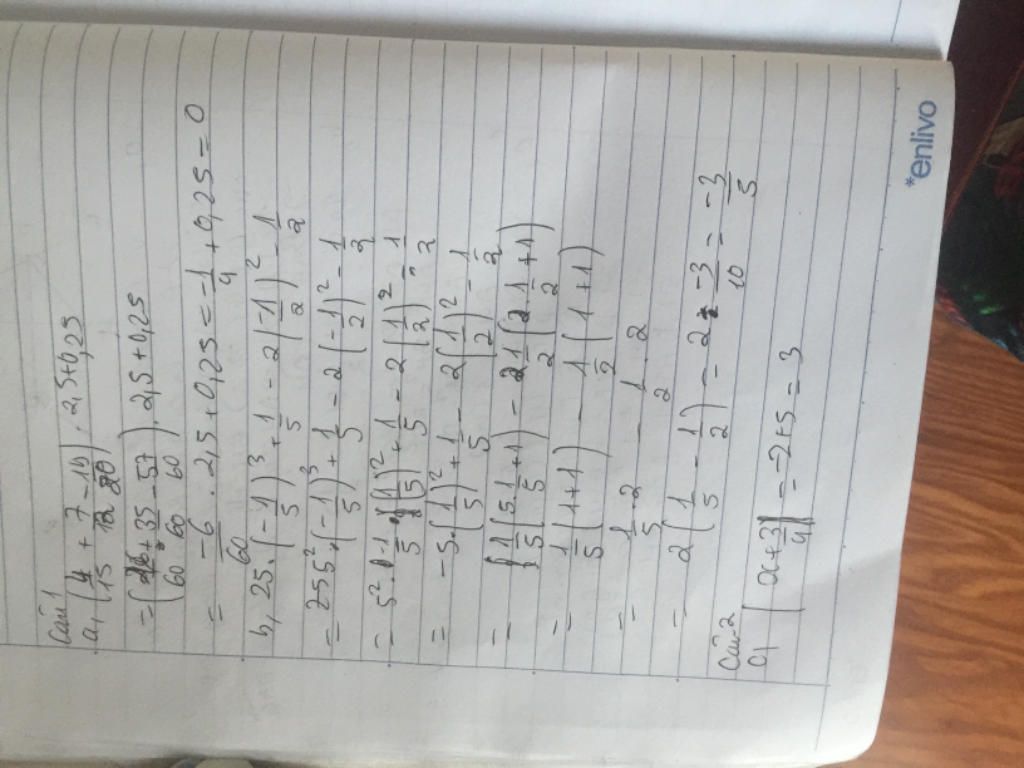 Câu 1
a, (4/15 + 7/12 - 19/20) . 2,5 + 0,25
= (16/60 + 35/60 - 57/60) . 2,5 + 0,25
= -6/60 . 2,5 + 0,25 = -1/4 + 0,25 = 0
b, 25 . (-1/5)^3 + 1/5 - 2 (-1/2)^2 - 1/2
= 5^2 . (-1/5)^3 + 1/5 - 2 (-1/2)^2 - 1/2
= 5^2 . -1/5 (1/5)^2 + 1/5 - 2 (1/2)^2 - 1/2
= -5 . (1/5)^2 + 1/5 - 2 (1/2)^2 - 1/2
= 1/5 (5 1/5 + 1) - 1/2 (2 . 1/2 + 1)
= 1/5 (1 + 1) - 1/2 (1 + 1)
= 1/5 . 2 - 1/2 . 2
= 2 (1/5 - 1/2) = 2 . -3/10 = -3/5
Câu 2
a, |x + 3/4| = -2 + 5 = 3
*enlivo